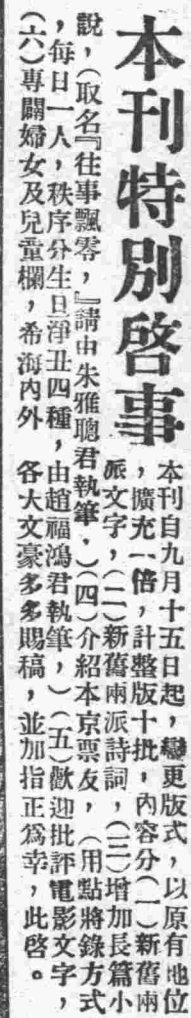 本刊特別啓事
本刊自九月十五日起,變更版式,以原有地位
,擴充一倍,計整版十批,內容分(一)新舊兩
派文字,(二)新舊兩派詩詞,(三)增加長篇小
說,(取名『往事飄零,』請由朱雅聰君執筆.)(四)介紹本京票友,(用點將錄方式
,每日一人,秩序分生旦淨丑四種,由趙福鴻君執筆,)(五)歡迎批評電影文字,
(六)專闢婦女及兒童欄,希海內外各大文豪多多賜稿,並加指正爲幸,此啓。